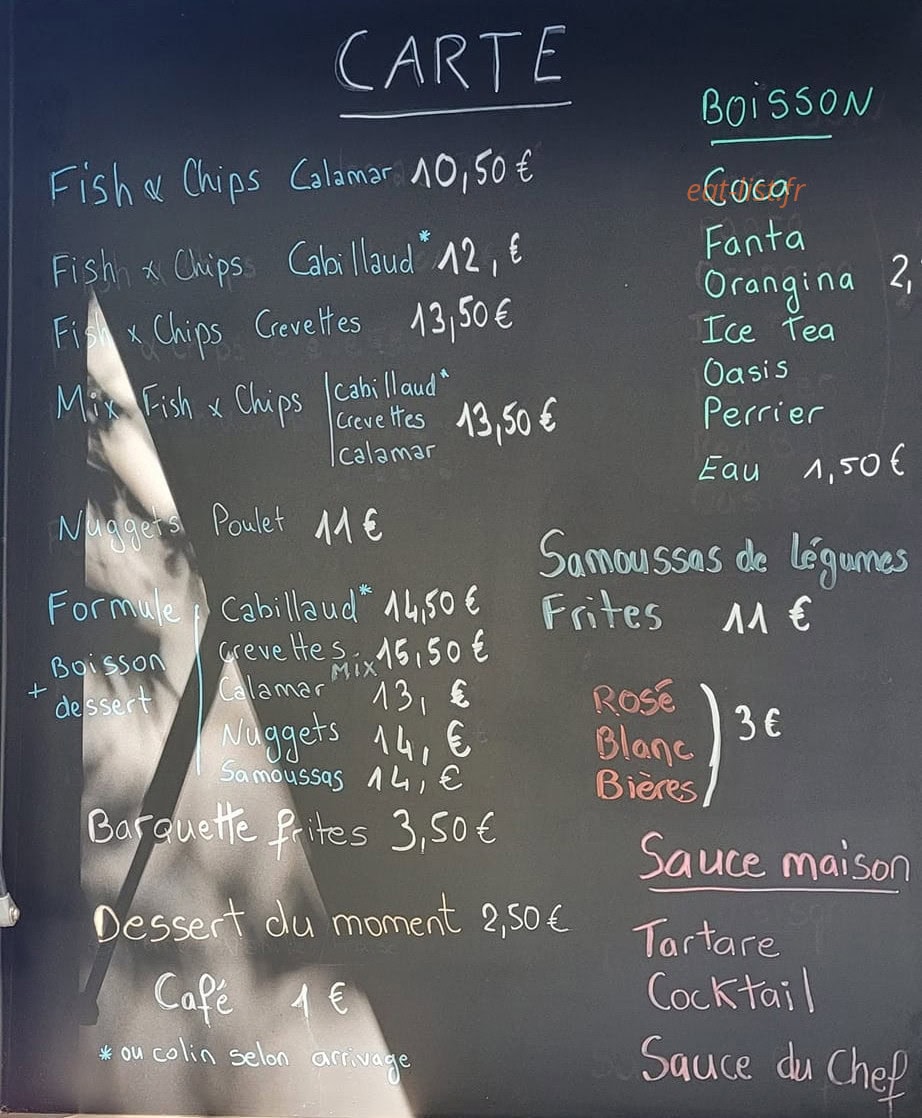 CARTE
Fish & Chips Calamar 10,50 €
Fish x Chips Cabillaud* 12, €
Fish x Chips Crevettes 13,50 €
Mix Fish x Chips
Cabillaud*
Crevettes
calamar
13,50 €
Nuggets Poulet 11 €
Formule
Boisson
+ dessert
Cabillaud* 14,50 €
Crevettes - Mix 15,50 €
Calamar 13, €
Nuggets 14, €
Samoussas 14, €
Barquette frites 3,50 €
Dessert du moment 2,50 €
Café 1 €
* ou colin selon arrivage
BOISSON
Coca
eat-list.fr
Fanta
Orangina 2,
Ice Tea
Oasis
Perrier
Eau 1,50 €
Samoussas de légumes
Frites 11 €
Rosé
Blanc
Bières
3 €
Sauce maison
Tartare
Cocktail
Sauce du Chef